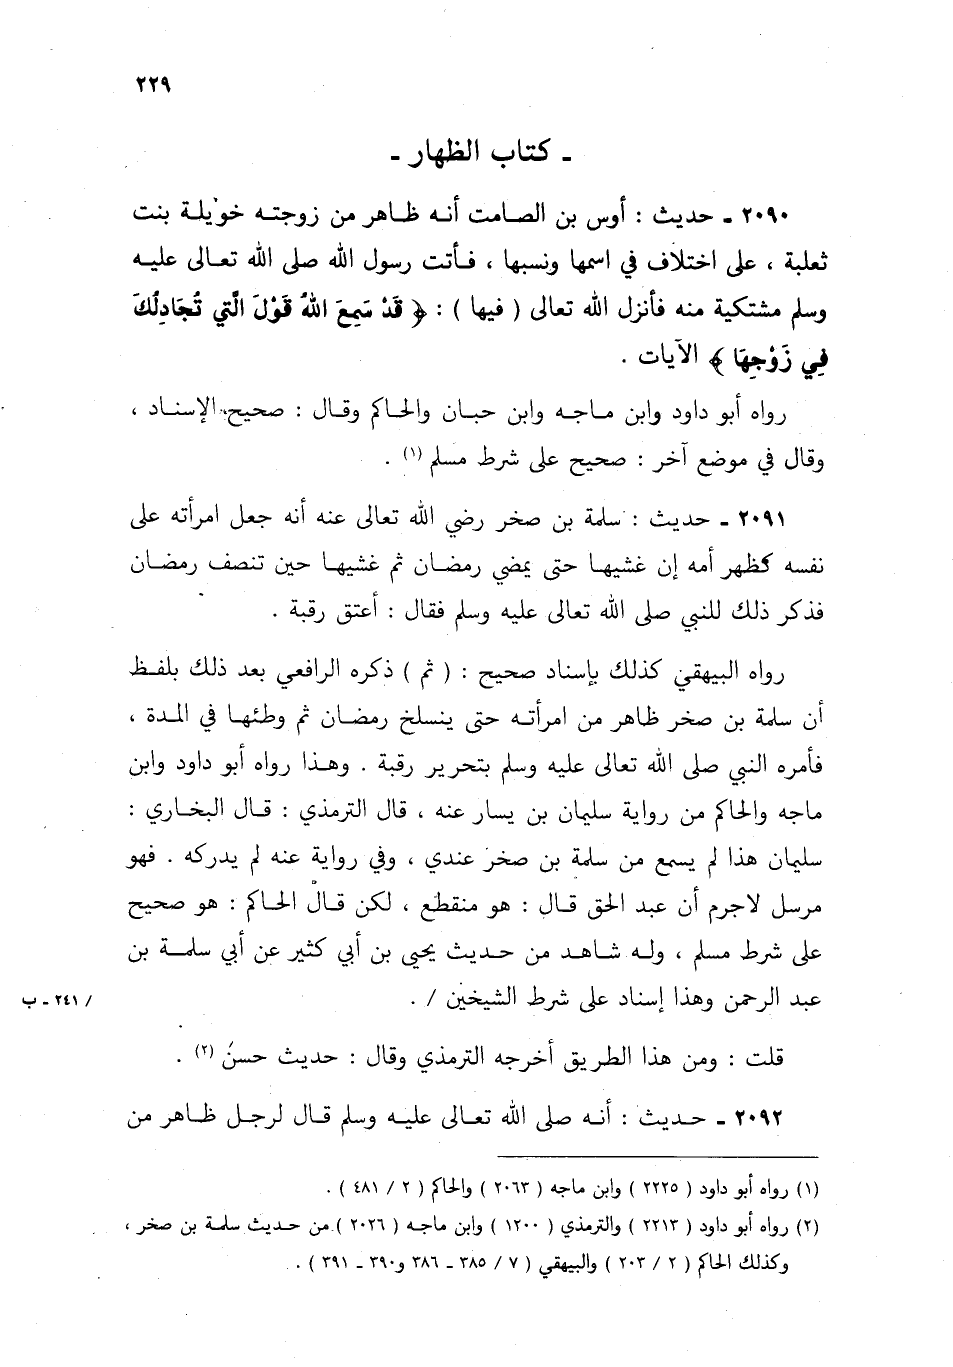 ٢٢٩
ـ كتاب الظهار ـ
٢٠٩٠ ـ حديث : أوس بن الصامت أنه ظاهر من زوجته خويلة بنت
ثعلبة ، على اختلاف في اسمها ونسبها ، فأتت رسول الله صلى الله تعالى عليه
وسلم مشتكية منه فأنزل الله تعالى ( فيها ) : ﴿ قَدْ سَمِعَ اللهُ قَوْلَ الَّتي تُجَادِلُكَ
فِي زَوْجِهَا ﴾ الآيات .
رواه أبو داود وابن ماجه وابن حبان والحاكم وقال : صحيح الإسناد ،
وقال في موضع آخر : صحيح على شرط مسلم (١) .
٢٠٩١ ـ حديث : سلمة بن صخر رضي الله تعالى عنه أنه جعل امرأته على
نفسه كظهر أمه إن غشيها حتى يمضي رمضان ثم غشيها حين تنصف رمضان
فذكر ذلك للنبي صلى الله تعالى عليه وسلم فقال : أعتق رقبة .
رواه البيهقي كذلك بإسناد صحيح : ( ثم ) ذكره الرافعي بعد ذلك بلفظ
أن سلمة بن صخر ظاهر من امرأته حتى ينسلخ رمضان ثم وطئها في المدة ،
فأمره النبي صلى الله تعالى عليه وسلم بتحرير رقبة . وهذا رواه أبو داود وابن
ماجه والحاكم من رواية سليمان بن يسار عنه ، قال الترمذي : قال البخاري :
سليمان هذا لم يسمع من سلمة بن صخر عندي ، وفي رواية عنه لم يدركه . فهو
مرسل لاجرم أن عبد الحق قال : هو منقطع ، لكن قال الحاكم : هو صحيح
على شرط مسلم ، وله شاهد من حديث يحيى بن أبي كثير عن أبي سلمة بن
عبد الرحمن وهذا إسناد على شرط الشيخين / .
/ ٢٤١ ـ ب
قلت : ومن هذا الطريق أخرجه الترمذي وقال : حديث حسنٌ (٢) .
٢٠٩٢ ـ حديث : أنه صلى الله تعالى عليه وسلم قال لرجل ظاهر من
(١) رواه أبو داود ( ٢٢٢٥ ) وابن ماجه ( ٢٠٦٣ ) والحاكم ( ٢ / ٤٨١ ) .
(٢) رواه أبو داود ( ٢٢١٣ ) والترمذي ( ١٢٠٠ ) وابن ماجه ( ٢٠٢٦ ) من حديث سلمة بن صخر ،
وكذلك الحاكم ( ٢ / ٢٠٣ ) والبيهقي ( ٧ / ٣٨٥ ـ ٣٨٦ و ٣٩٠ ـ ٣٩١ ) .